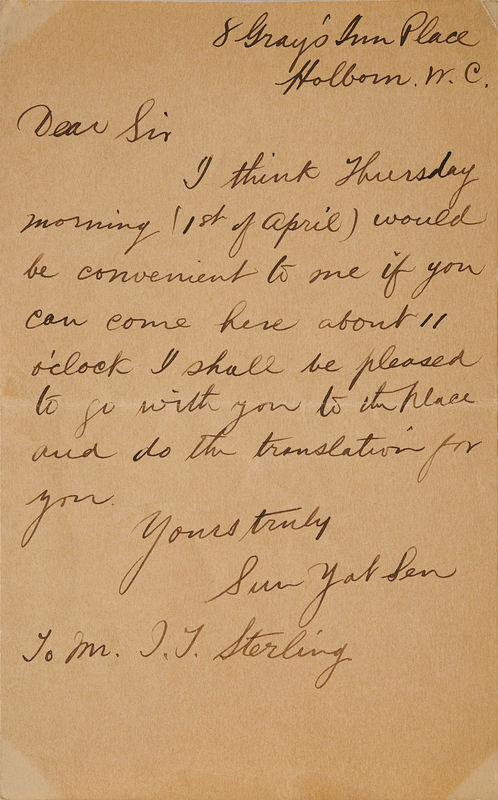 8 Gray's Inn Place
Holborn. W. C.
Dear Sir
I think Thursday
morning (1st of April) would
be convenient to me if you
can come here about 11
o'clock I shall be pleased
to go with you to the place
and do the translation for
you.
Yours truly
Sun Yat Sen
To Mr. I. T. Sterling